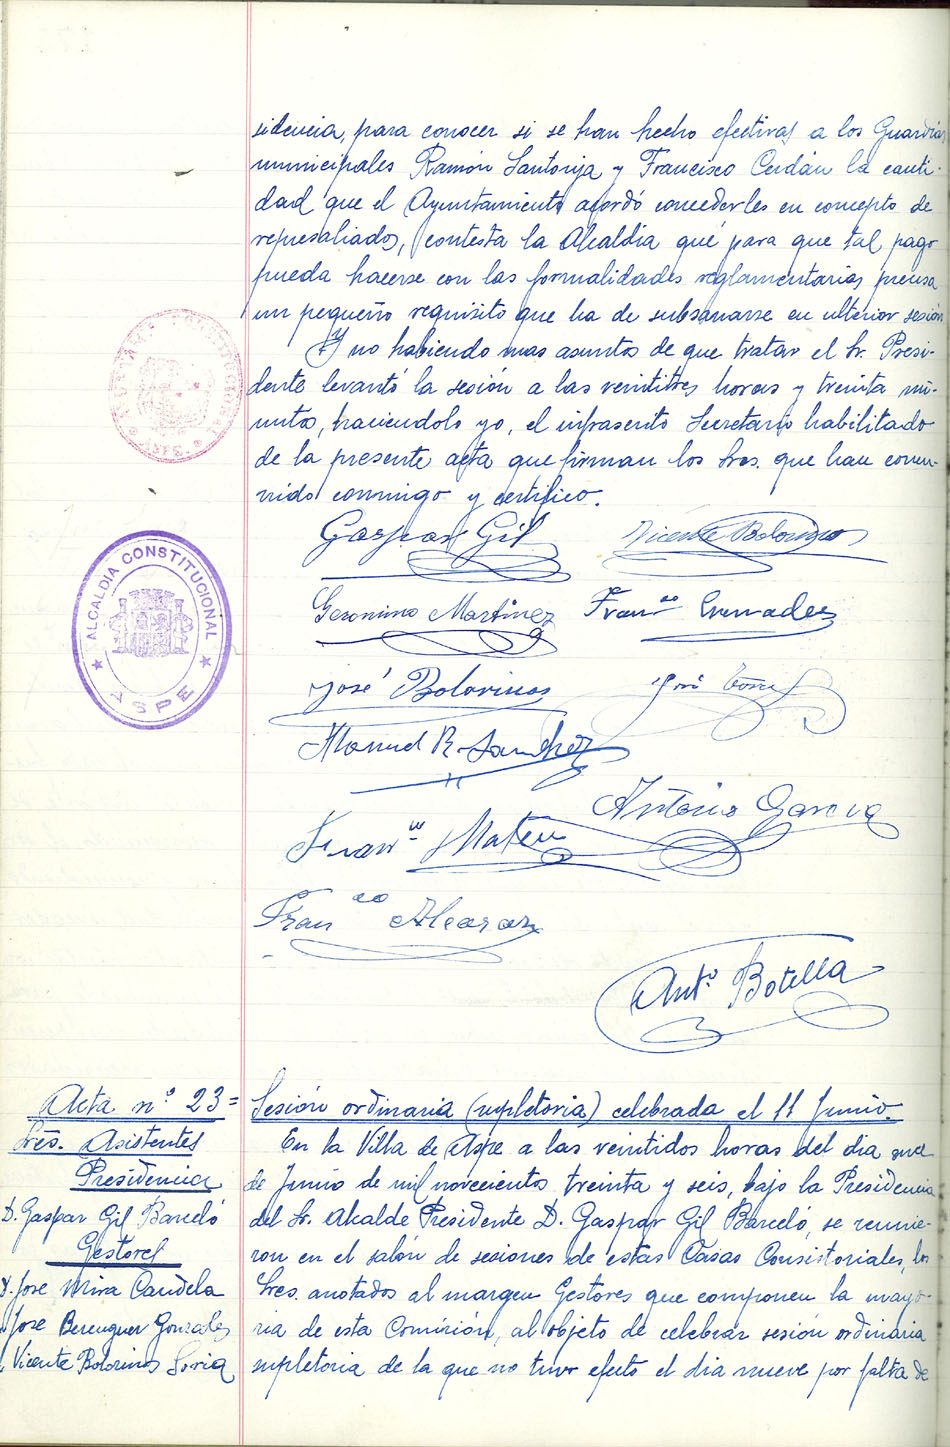 sidencia, para conocer si se han hecho efectivas a los Guardias
municipales Ramón Santonja y Francisco Cerdán la canti-
dad que el Ayuntamiento acordó concederles en concepto de
represaliados, contesta la Alcaldía que para que tal pago
pueda hacerse con las formalidades reglamentarias precisa
un pequeño requisito que ha de subsanarse en ulterior sesión
Y no habiendo mas asuntos de que tratar el Sr. Presi-
dente levantó la sesión a las veintitres horas y treinta mi-
nutos, haciendolo yo, el infrascrito Secretario habilitado
de la presente acta que firman los Sres. que han concu-
rrido conmigo y certifico.
Gaspar Gil
Vicente Bolorinos
ALCALDIA CONSTITUCIONAL
ASPE
Geronimo Martinez
Fran.co Cremades
José Bolorinos
José Torres
Manuel R. Sanchez
Antonio Garcia
Fran.co Mateu
Fran.co Alcaraz
Ant.º Botella
Acta n.º 23=
Sres. Asistentes
Presidencia
D. Gaspar Gil Barceló
Gestores
D. Jose Mira Candela
" Jose Berenguer Gonzales
" Vicente Bolorinos Soria
Sesión ordinaria (supletoria) celebrada el 11 Junio.
En la Villa de Aspe a las veintidos horas del dia once
de Junio de mil novecientos treinta y seis, bajo la Presidencia
del Sr. Alcalde Presidente D. Gaspar Gil Barceló, se reunie-
ron en el salón de sesiones de estas Casas Consistoriales, los
Sres. anotados al margen Gestores que componen la mayo-
ria de esta Comisión, al objeto de celebrar sesión ordinaria
supletoria de la que no tuvo efecto el dia nueve por falta de